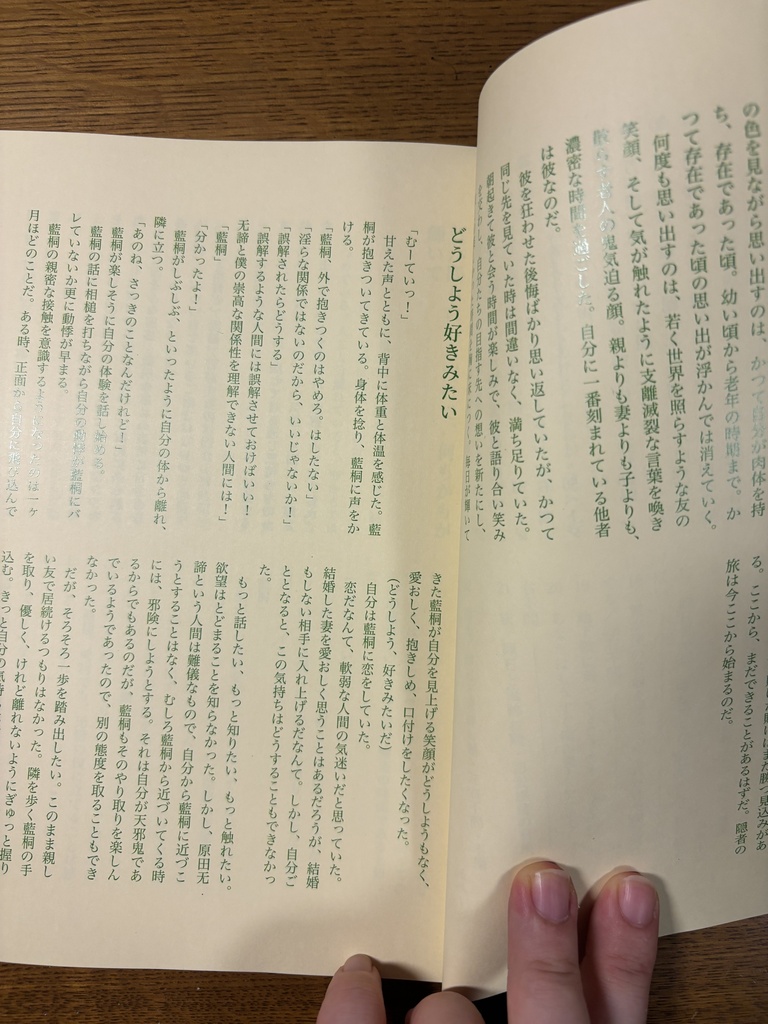 の色を見ながら思い出すのは、かつて自分が肉体を持
ち、存在であった頃。幼い頃から老年の時場まで。か
つて存在であった頃の思い出が浮かんでは消えていく。
何度も思い出すのは、若く世界を照らすような友の
笑顔、そして気が触れたように支離滅裂な言葉を喚き
散らす老人の鬼気迫る顔。親よりも妻よりも子よりも、
濃密な時間を過ごした。自分に一番刻まれている他者
は彼なのだ。
彼を狂わせた後悔ばかり思い返していたが、かつて
同じ先を見ていた時は間違いなく、満ち足りていた。
朝起きて彼と会う時間が楽しみで、彼と語り合い笑み
自分たちの目指す先への想いを新たにし、
る。ここから、まだできることがあるはずだ。隠者の
旅は今ここから始まるのだ。
どうしよう好きみたい
「むーていっ!」
甘えた声とともに、背中に体重と体温を感じた。藍
桐が抱きついてきている。身体を捻り、藍桐に声をか
ける。
「藍桐、外で抱きつくのはやめろ。はしたない」
「淫らな関係ではないのだから、いいじゃないか!」
「誤解されたらどうする」
「誤解するような人間には誤解させておけばいい!
無諦と僕の崇高な関係性を理解できない人間には!」
「藍桐」
「分かったよ!」
藍桐がしぶしぶ、といったように自分の体から離れ、
隣に立つ。
「あのね、さっきのことなんだけれど!」
藍桐が楽しそうに自分の体験を話し始める。
藍桐の話に相槌を打ちながら自分の動悸が藍桐にバ
レていないか更に動悸が早まる。
藍桐の親密な接触を意識するよ
は一ヶ
月ほどのことだ。ある時、正面か
込んで
きた藍桐が自分を見上げる笑顔がどうしようもなく、
愛おしく、抱きしめ、口付けをしたくなった。
(どうしよう、好きみたいだ)
自分は藍桐に恋をしていた。
恋だなんて、軟弱な人間の気迷いだと思っていた。
結婚した妻を愛おしく思うことはあるだろうが、結婚
もしない相手に入れ上げるだなんて。しかし、自分ご
ととなると、この気持ちはどうすることもできなかっ
た。
もっと話したい、もっと知りたい、もっと触れたい。
欲望はとどまることを知らなかった。しかし、原田无
諦という人間は難儀なもので、自分から藍桐に近づこ
うとすることはなく、むしろ藍桐から近づいてくる時
には、邪険にしようとする。それは自分が天邪鬼であ
るからでもあるのだが、藍桐もそのやり取りを楽しん
でいるようであったので、別の態度を取ることもでき
なかった。
だが、そろそろ一歩を踏み出したい。このまま親し
い友で居続けるつもりはなかった。隣を歩く藍桐の手
を取り、優しく、けれど離れないようにぎゅっと握り
込む。きっと自分の気持